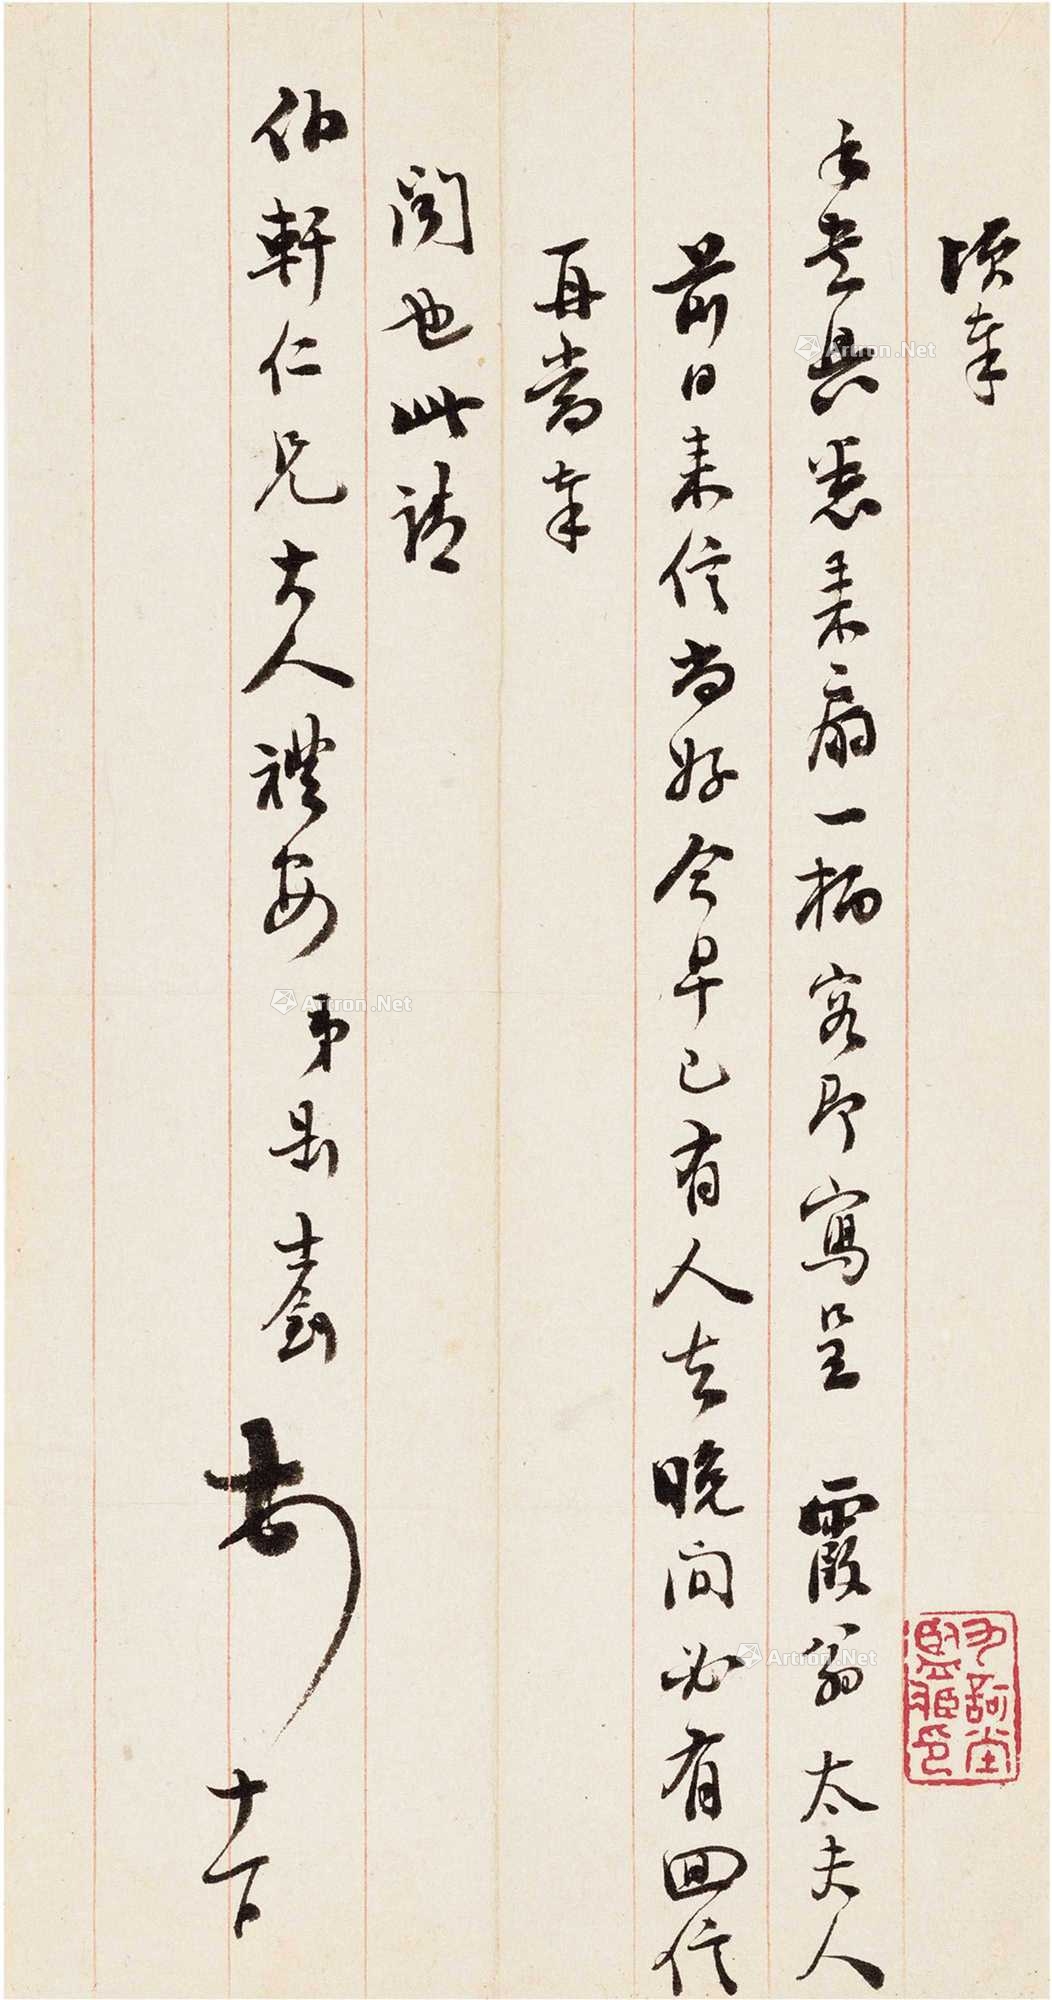 頃奉
手書具悉來扇一柄容即寫呈 霞翁太夫人
前日來信尚好今早已有人去晚間必有回信
再當奉
聞也此請
伯軒仁兄大人禮安 弟 十一日
Artron.Net
Artron.Net
Artron.Net